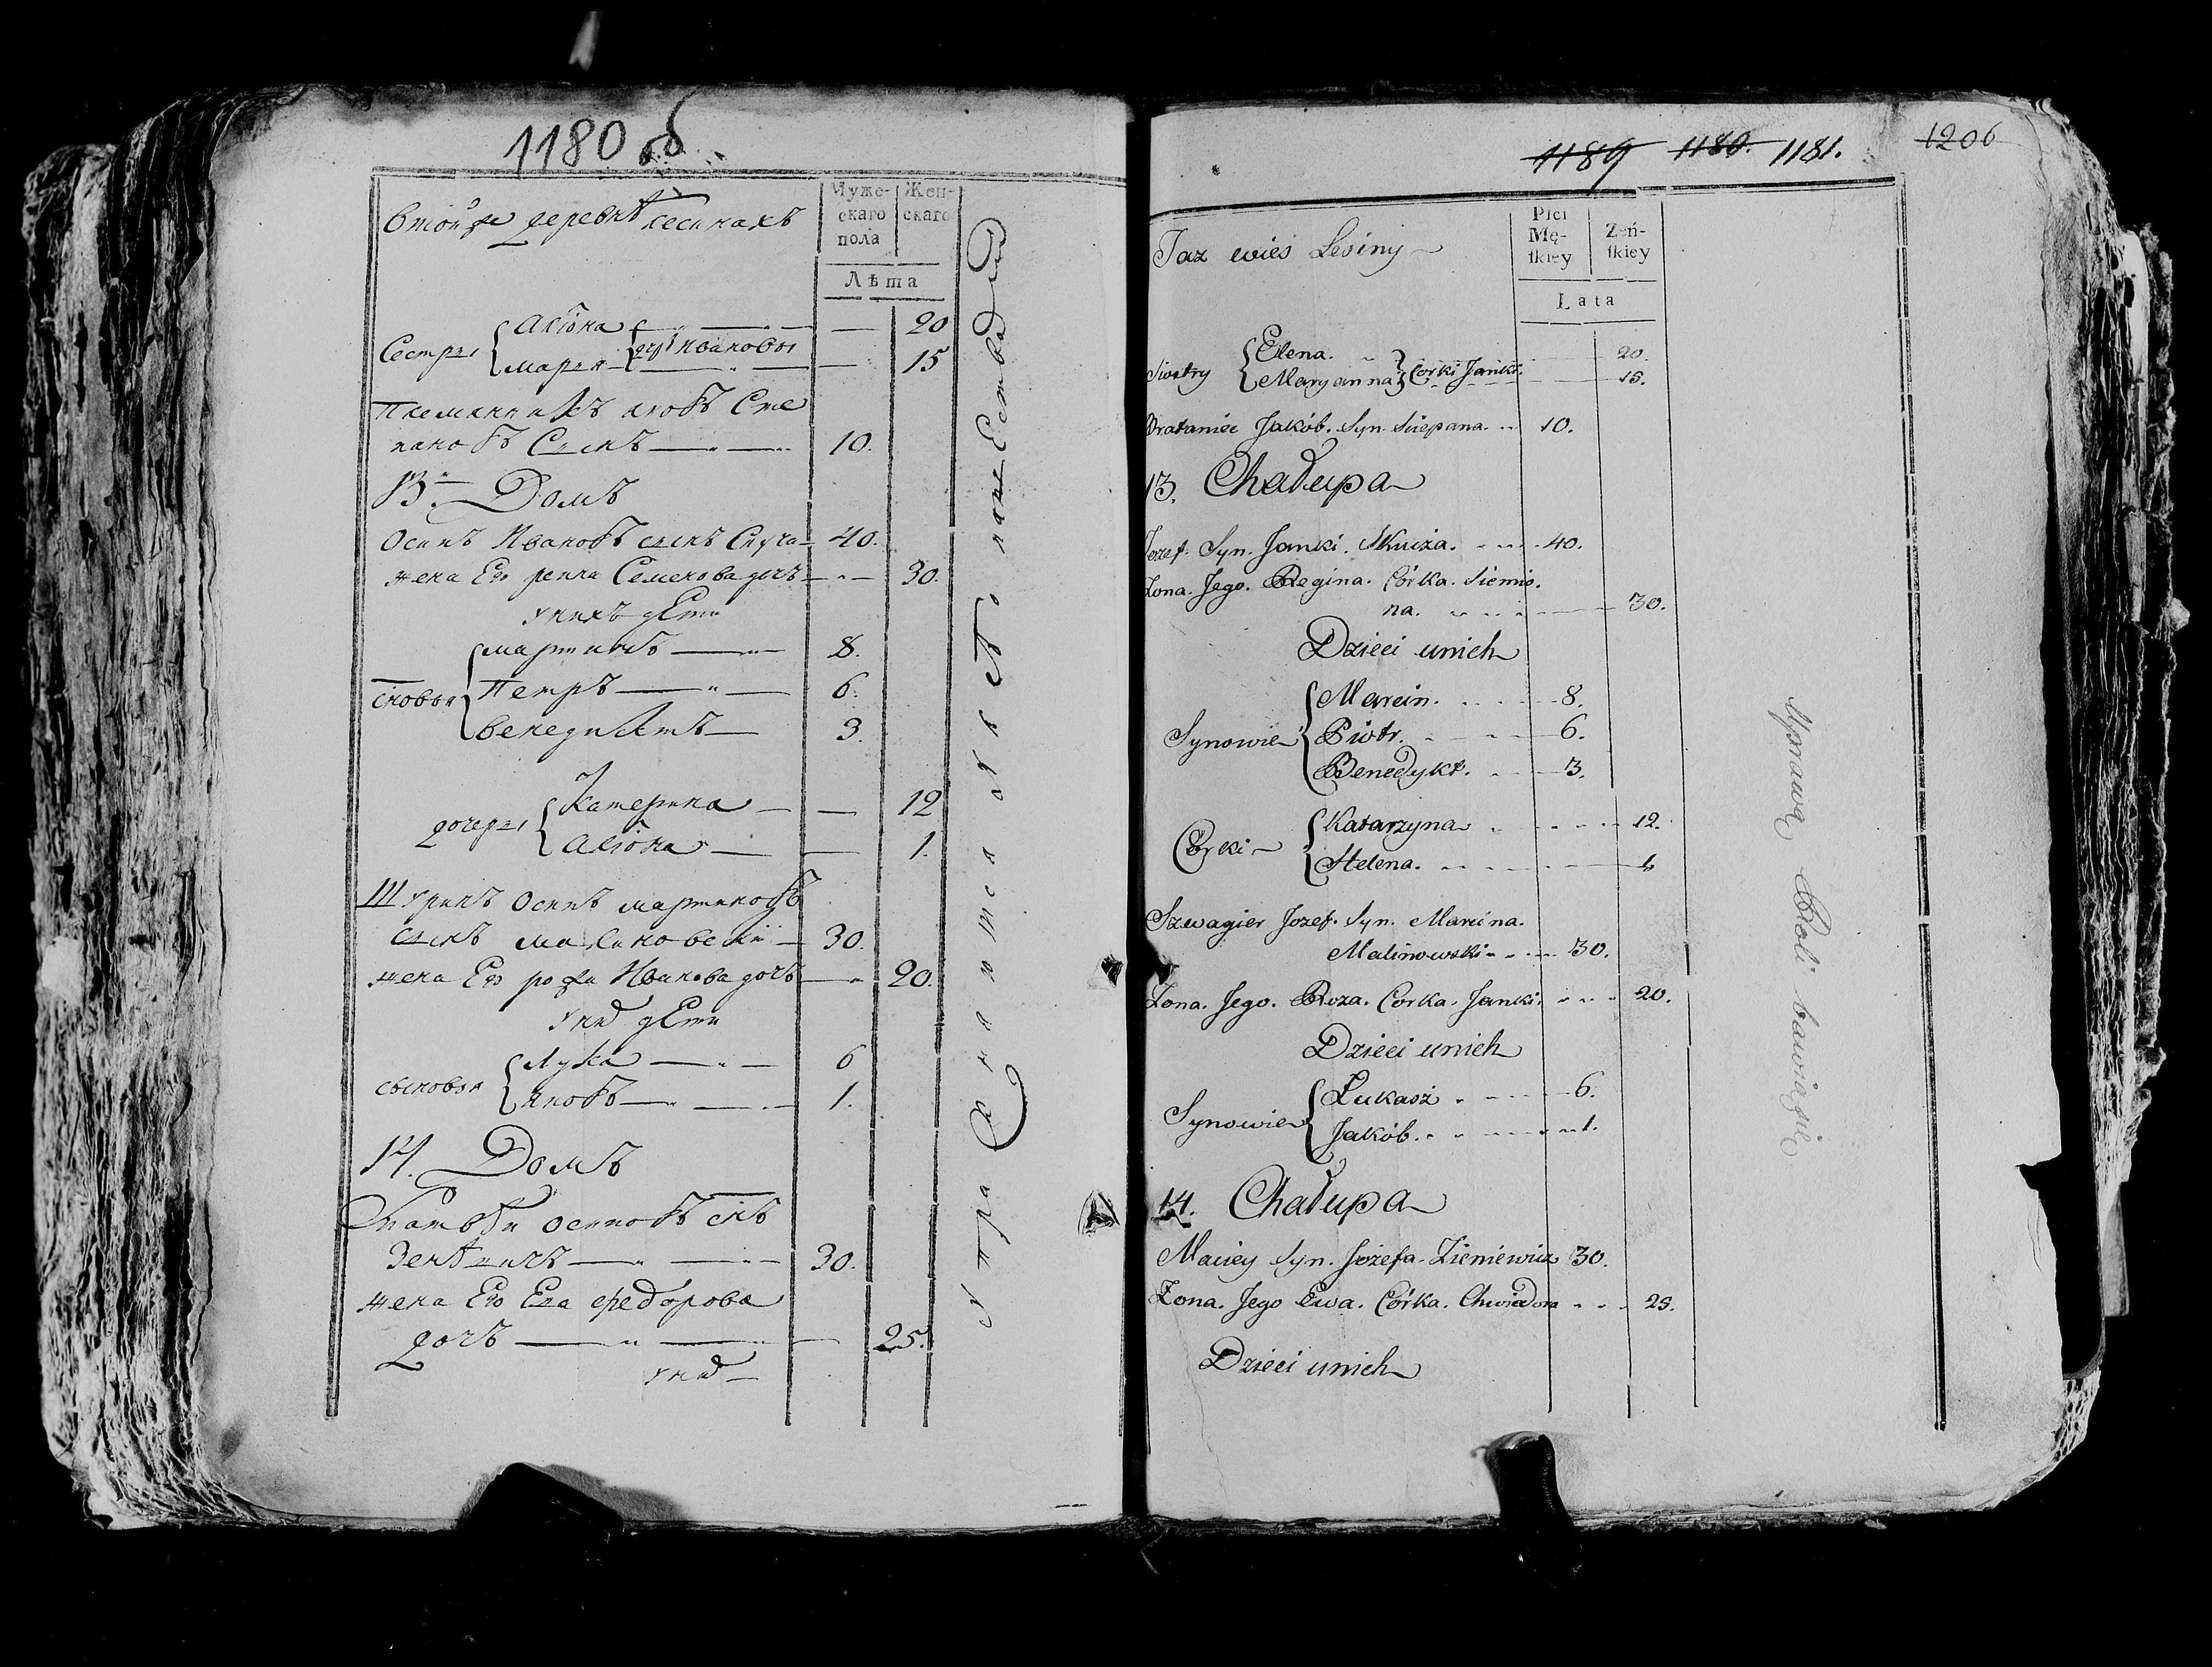 1180 об.
Втойже деревнѣ лесинахъ
Муже-
скаго
пола
Жен-
скаго
Лѣта
Сестры
Алiона 20
дочери Ивановы
марья 15
Племянникъ яковъ Сте
пановъ Сынъ 10.
13. Домъ
Осипъ Ивановъ сынъ 40.
жена Его Семенова дочь 30.
у нихъ дети
сновья
мартинъ 8.
Петръ 6.
венедиктъ 3.
дочеры
Катерина 12
Алiона 1.
Шуринъ Осипъ мартиновъ
сынъ малиновскiй 30.
жена Его Иванова дочь 20.
у них дети
сыновья
Лука 6
яковъ 1.
14. Домъ
Матвѣй осиповъ снъ
30.
жена Его Ева федорова
дочь 25.
у них
1189 1180. 1181. 1206
Taz wies Lesiny
Płci
Mę-
ſkiey
Zeń-
ſkiey
Lata
Siostry
Elena. 20.
Maryanna 15.
Corki Janki.
Brataniec Jakób. Syn. Sciepana. 10.
13. Chałupa
Jozef. Syn. Janki. 40.
Zona. Jego. Regina. Córka. Siemio.
na. 30.
Dzieci unich
Synowie
Marcin. 8.
Piotr. 6.
Benedykt. 3.
Córki
Katarzyna 12.
Helena. 1.
Szwagier Jozef. Syn. Marcina.
Malinowski 30.
Zona. Jego. Roza. Corka. Janki. 20.
Dzieci unich
Synowie
Łukasz 6.
Jakób. 1.
14. Chałupa
Maciey Syn. Jozefa. Zieniewicz 30.
Zona. Jego Ewa. Córka. Chwiedora 25.
Dzieci unich
Uprawą Roli bawią się